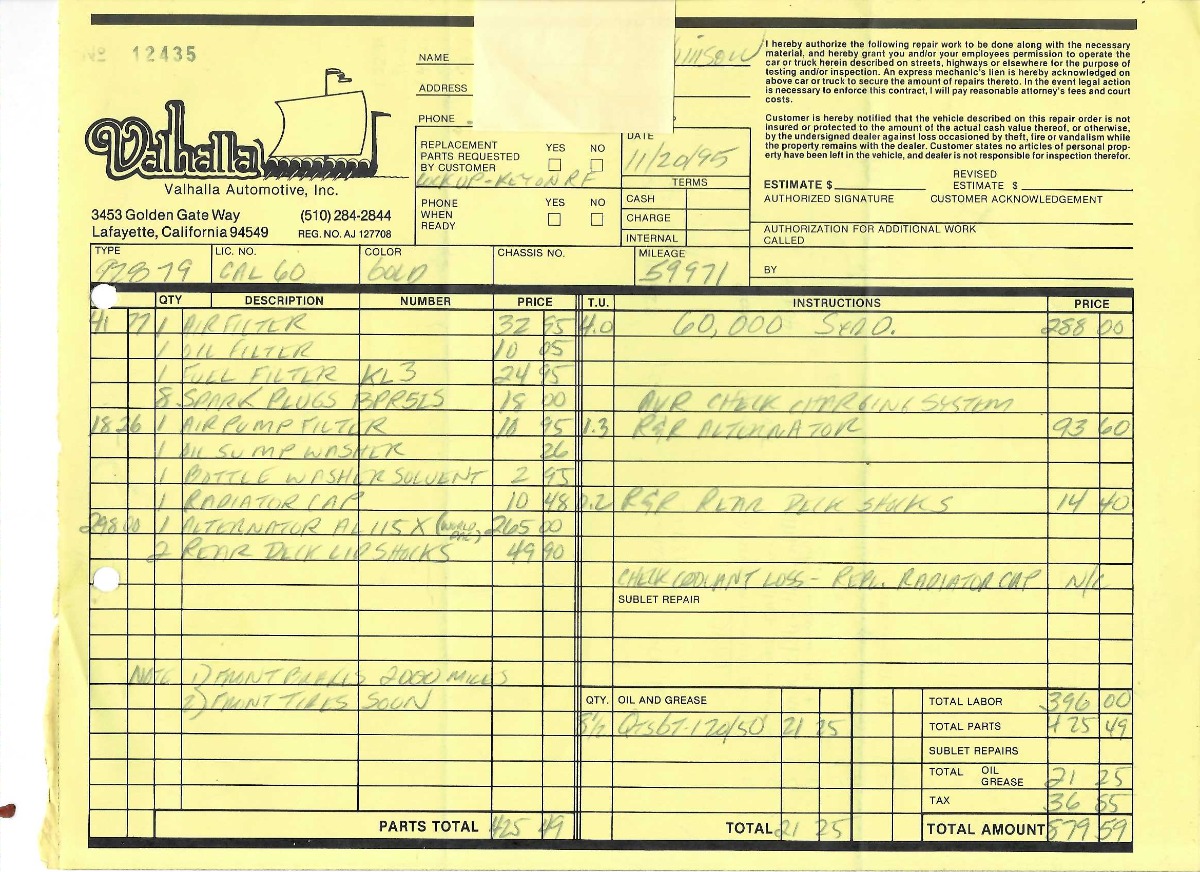 № 12435
Valhalla
Valhalla Automotive, Inc.
3453 Golden Gate Way (510) 284-2844
Lafayette, California 94549 REG. NO. AJ 127708
NAME
ADDRESS
PHONE
REPLACEMENT PARTS REQUESTED BY CUSTOMER YES NO
LOCK UP - KEY ON RF
PHONE WHEN READY YES NO
DATE
11/20/95
TERMS
CASH
CHARGE
INTERNAL
I hereby authorize the following repair work to be done along with the necessary
material, and hereby grant you and/or your employees permission to operate the
car or truck herein described on streets, highways or elsewhere for the purpose of
testing and/or inspection. An express mechanic's lien is hereby acknowledged on
above car or truck to secure the amount of repairs thereto. In the event legal action
is necessary to enforce this contract, I will pay reasonable attorney's fees and court
costs.
Customer is hereby notified that the vehicle described on this repair order is not
insured or protected to the amount of the actual cash value thereof, or otherwise,
by the undersigned dealer against loss occasioned by theft, fire or vandalism while
the property remains with the dealer. Customer states no articles of personal prop-
erty have been left in the vehicle, and dealer is not responsible for inspection therefor.
ESTIMATE $ REVISED ESTIMATE $
AUTHORIZED SIGNATURE CUSTOMER ACKNOWLEDGEMENT
AUTHORIZATION FOR ADDITIONAL WORK
CALLED
BY
TYPE LIC. NO. COLOR CHASSIS NO. MILEAGE
928 79 CAL 60 GOLD 59971
QTY DESCRIPTION NUMBER PRICE T.U. INSTRUCTIONS PRICE
41 77 1 AIR FILTER 32 95 4.0 60,000 288 00
1 OIL FILTER 10 05
1 FUEL FILTER KL3 24 95
8 SPARK PLUGS BPR5ES 18 00 CHECK CHARGING SYSTEM
18 26 1 AIR PUMP FILTER 10 95 1.3 R&R ALTERNATOR 93 60
1 OIL SUMP WASHER 26
1 BOTTLE WASHER SOLVENT 2 95
1 RADIATOR CAP 10 48 0.2 R&R REAR DECK SHOCKS 14 40
298 00 1 ALTERNATOR AL 115 X 265 00
2 REAR DECK LID SHOCKS 49 90
CHECK COOLANT LOSS - REPL. RADIATOR CAP N/C
SUBLET REPAIR
NOTE 1) FRONT BRAKES 2000 MILES
2) FRONT TIRES SOON
QTY. OIL AND GREASE TOTAL LABOR 396 00
8 1/2 21 25 TOTAL PARTS 425 49
SUBLET REPAIRS
TOTAL OIL GREASE 21 25
TAX 36 85
PARTS TOTAL 425 49 TOTAL 21 25 TOTAL AMOUNT 879 59